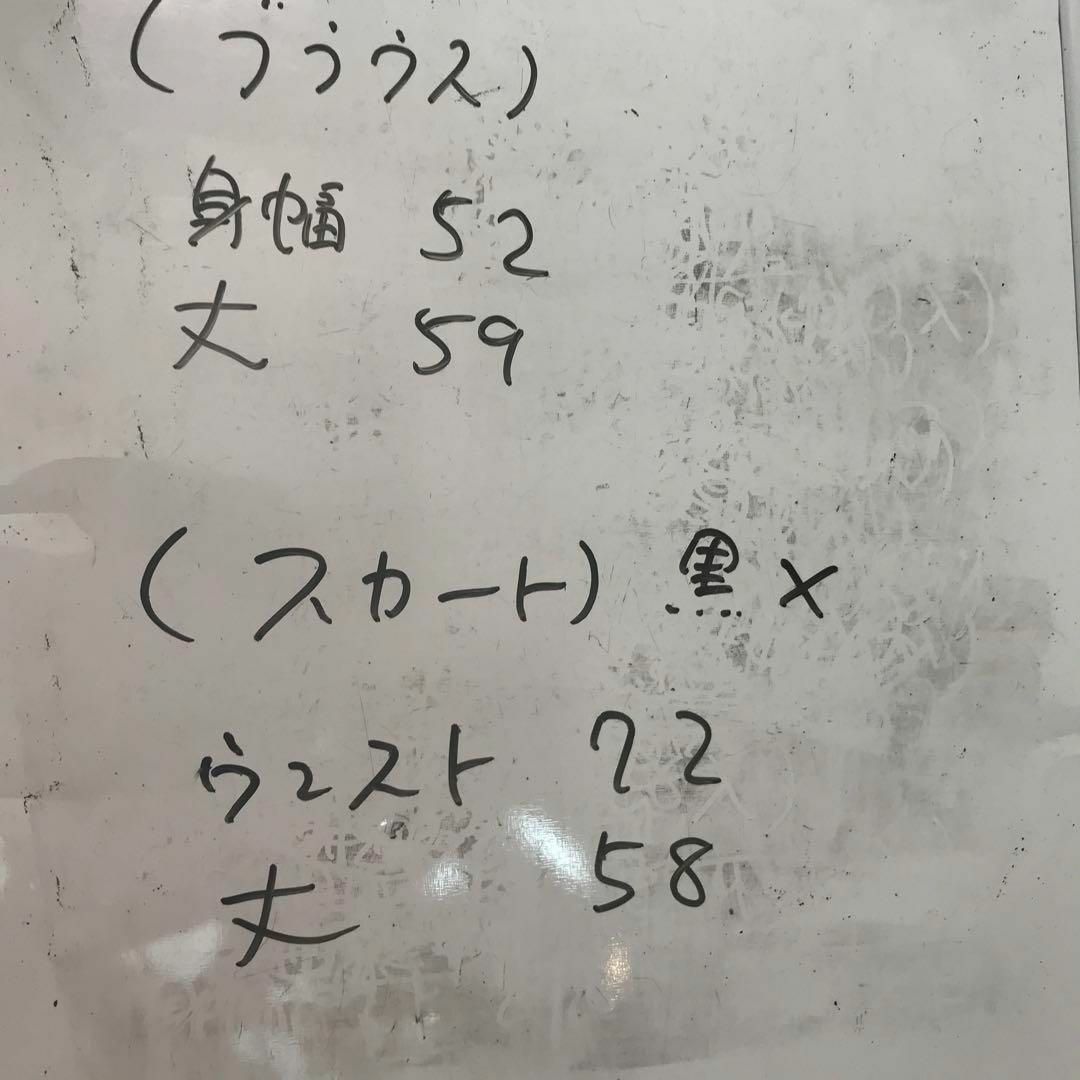 (ブラウス)
身幅 52
丈 59
(スカート) 黒 ×
ウエスト 72
丈 58